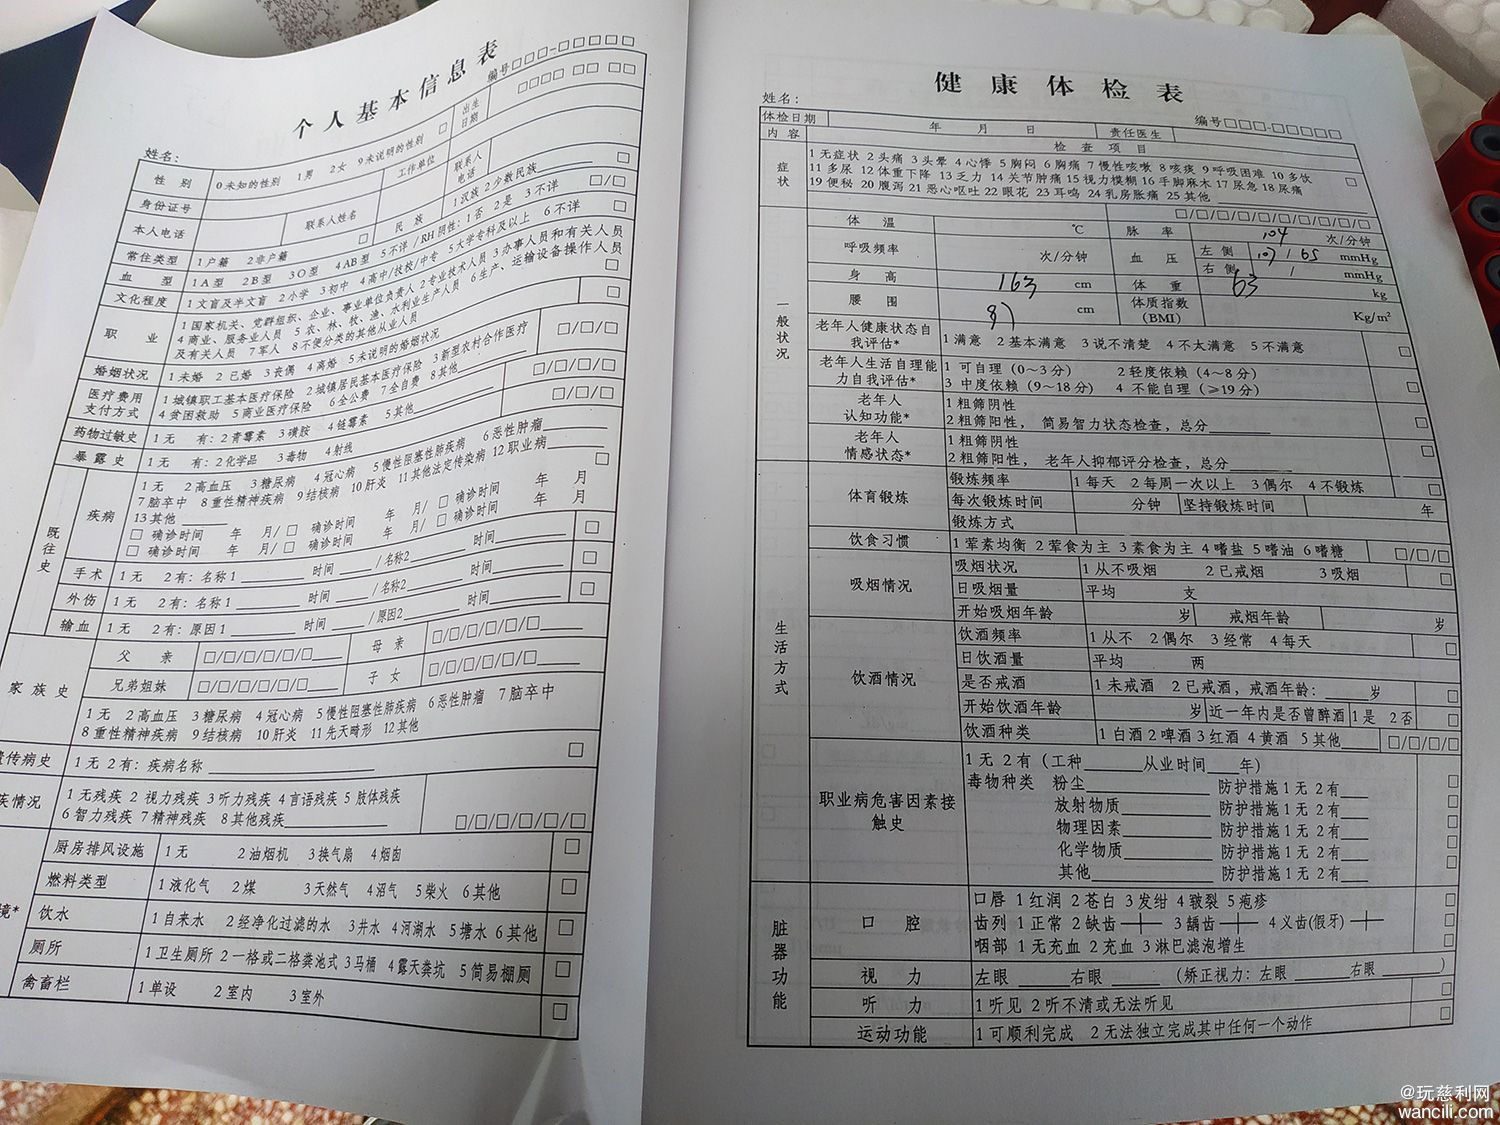 个人基本信息表
姓名：
编号□□□-□□□□□
性 别 0未知的性别 1男 2女 9未说明的性别 □ 出生日期 □□□□ □□ □□
身份证号 工作单位
本人电话 联系人姓名 联系人电话
常住类型 1户籍 2非户籍 □ 民 族 1汉族 2少数民族 □
血 型 1A型 2B型 3O型 4AB型 5不详 / RH阴性：1否 2是 3不详 □/□
文化程度 1文盲及半文盲 2小学 3初中 4高中/技校/中专 5大学专科及以上 6不详 □
职 业 1国家机关、党群组织、企业、事业单位负责人 2专业技术人员 3办事人员和有关人员
4商业、服务业人员 5农、林、牧、渔、水利业生产人员 6生产、运输设备操作人员
及有关人员 7军人 8不便分类的其他从业人员 □
婚姻状况 1未婚 2已婚 3丧偶 4离婚 5未说明的婚姻状况 □
医疗费用支付方式 1城镇职工基本医疗保险 2城镇居民基本医疗保险 3新型农村合作医疗
4贫困救助 5商业医疗保险 6全公费 7全自费 8其他 □/□/□
药物过敏史 1无 有：2青霉素 3磺胺 4链霉素 5其他 □/□/□/□
暴露史 1无 有：2化学品 3毒物 4射线 □/□/□
既往史
疾病 1无 2高血压 3糖尿病 4冠心病 5慢性阻塞性肺疾病 6恶性肿瘤
7脑卒中 8重性精神疾病 9结核病 10肝炎 11其他法定传染病 12职业病
13其他 □
□ 确诊时间 年 月/ □ 确诊时间 年 月/ □ 确诊时间 年 月
□ 确诊时间 年 月/ □ 确诊时间 年 月/ □ 确诊时间 年 月
手术 1无 2有：名称1 时间 /名称2 时间 □
外伤 1无 2有：名称1 时间 /名称2 时间 □
输血 1无 2有：原因1 时间 /原因2 时间 □
家族史
父 亲 □/□/□/□/□/□ 母 亲 □/□/□/□/□/□
兄弟姐妹 □/□/□/□/□/□ 子 女 □/□/□/□/□/□
1无 2高血压 3糖尿病 4冠心病 5慢性阻塞性肺疾病 6恶性肿瘤 7脑卒中
8重性精神疾病 9结核病 10肝炎 11先天畸形 12其他
传病史 1无 2有：疾病名称 □
疾情况 1无残疾 2视力残疾 3听力残疾 4言语残疾 5肢体残疾
6智力残疾 7精神残疾 8其他残疾 □/□/□/□/□/□
境*
厨房排风设施 1无 2油烟机 3换气扇 4烟囱 □
燃料类型 1液化气 2煤 3天然气 4沼气 5柴火 6其他 □
饮水 1自来水 2经净化过滤的水 3井水 4河湖水 5塘水 6其他 □
厕所 1卫生厕所 2一格或二格粪池式 3马桶 4露天粪坑 5简易棚厕 □
禽畜栏 1单设 2室内 3室外 □
健康体检表
姓名：
编号□□□-□□□□□
体检日期 年 月 日 责任医生
内容 检查项目
症状 1无症状 2头痛 3头晕 4心悸 5胸闷 6胸痛 7慢性咳嗽 8咳痰 9呼吸困难 10多饮
11多尿 12体重下降 13乏力 14关节肿痛 15视力模糊 16手脚麻木 17尿急 18尿痛
19便秘 20腹泻 21恶心呕吐 22眼花 23耳鸣 24乳房胀痛 25其他 □
□/□/□/□/□/□/□/□/□/□
一般状况
体 温 ℃ 脉 率 104 次/分钟
呼吸频率 次/分钟 血 压 左侧 107/65 mmHg
右侧 / mmHg
身 高 163 cm 体 重 63 kg
腰 围 87 cm 体质指数(BMI) Kg/m²
老年人健康状态自我评估* 1满意 2基本满意 3说不清楚 4不太满意 5不满意 □
老年人生活自理能力自我评估* 1 可自理（0～3分） 2 轻度依赖（4～8分）
3 中度依赖（9～18分） 4 不能自理（≥19分） □
老年人认知功能* 1粗筛阴性
2粗筛阳性， 简易智力状态检查，总分 □
老年人情感状态* 1粗筛阴性
2粗筛阳性， 老年人抑郁评分检查，总分 □
生活方式
体育锻炼 锻炼频率 1每天 2每周一次以上 3偶尔 4不锻炼 □
每次锻炼时间 分钟 坚持锻炼时间 年
锻炼方式
饮食习惯 1荤素均衡 2荤食为主 3素食为主 4嗜盐 5嗜油 6嗜糖 □/□/□
吸烟情况 吸烟状况 1从不吸烟 2已戒烟 3吸烟 □
日吸烟量 平均 支
开始吸烟年龄 岁 戒烟年龄 岁
饮酒情况 饮酒频率 1从不 2偶尔 3经常 4每天 □
日饮酒量 平均 两
是否戒酒 1未戒酒 2已戒酒，戒酒年龄： 岁 □
开始饮酒年龄 岁 近一年内是否曾醉酒 1是 2否 □
饮酒种类 1白酒 2啤酒 3红酒 4黄酒 5其他 □/□/□/□
职业病危害因素接触史 1无 2有（工种 从业时间 年） □
毒物种类 粉尘 防护措施1无 2有 □
放射物质 防护措施1无 2有 □
物理因素 防护措施1无 2有 □
化学物质 防护措施1无 2有 □
其他 防护措施1无 2有 □
脏器功能
口 腔 口唇 1红润 2苍白 3发绀 4皲裂 5疱疹 □
齿列 1正常 2缺齿 3龋齿 4义齿(假牙) □
咽部 1无充血 2充血 3淋巴滤泡增生 □
视 力 左眼 右眼 （矫正视力：左眼 右眼 ）
听 力 1听见 2听不清或无法听见 □
运动功能 1可顺利完成 2无法独立完成其中任何一个动作 □
@玩慈利网
wancili.com